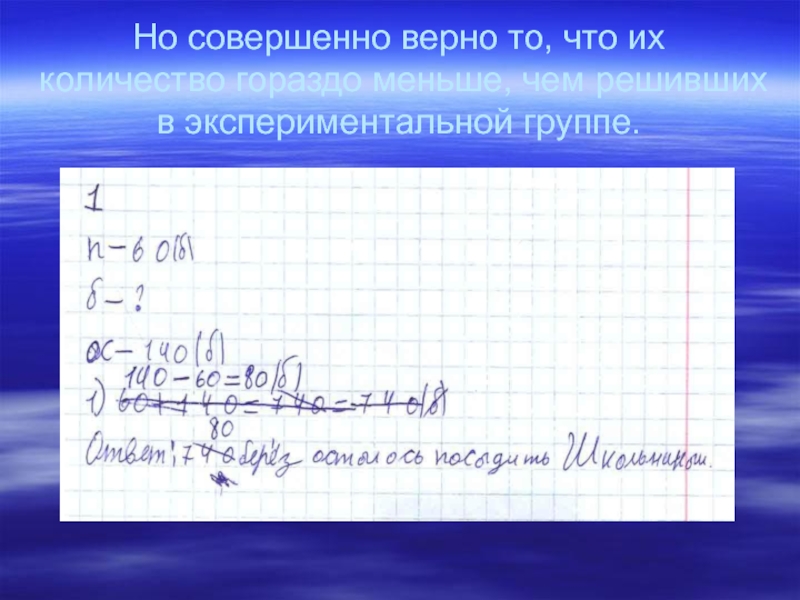 Но совершенно верно то, что их
количество гораздо меньше, чем решивших
в экспериментальной группе.
1
п – 60(б)
б – ?
ос – 140(б)
140 – 60 = 80(б)
1) 60 + 140 = 740 = 740(б)
80
Ответ: 740 берёз осталось посадить Школьникам.